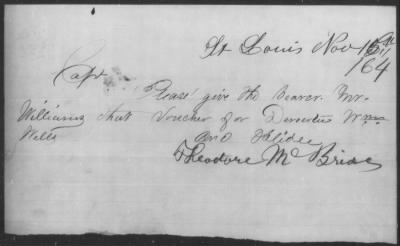 St Louis Nov 15th
/64
Capt
Please give the bearer Mr.
Williams that Voucher for Wm
Wells and
Theodore McBride